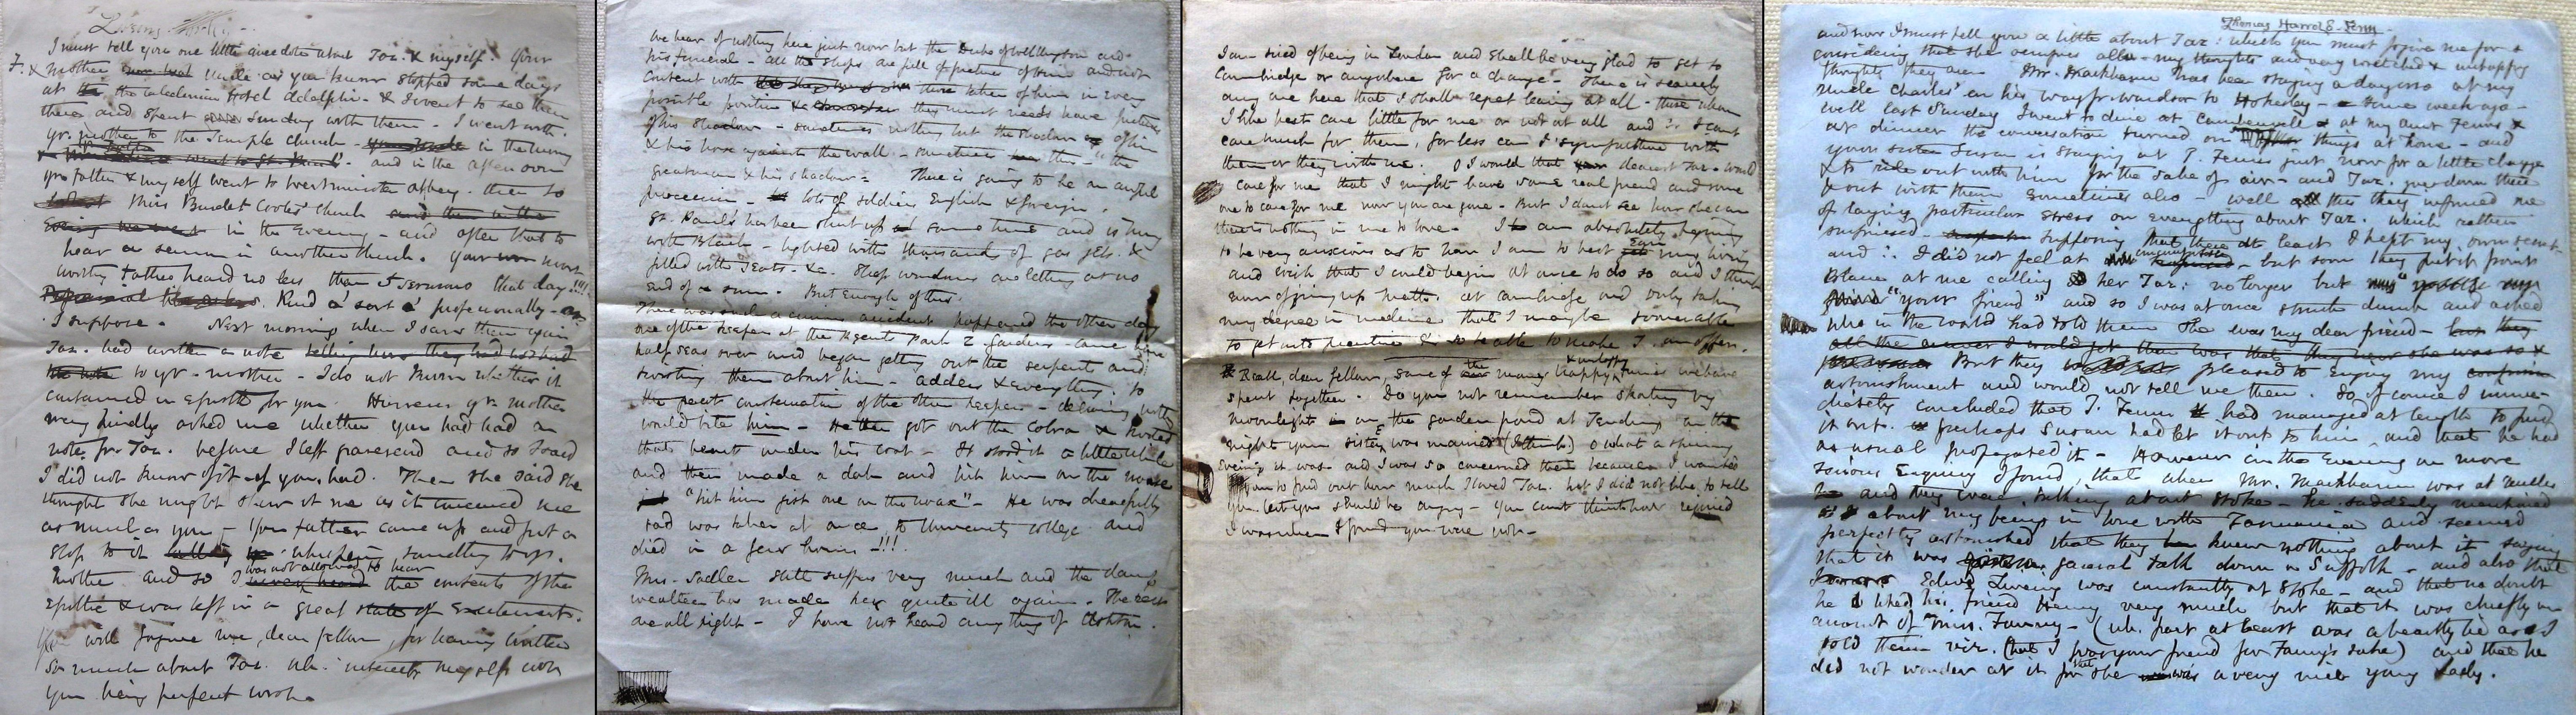 I must tell you one little anecdote about Taz. & myself. Your
mother & Uncle as you know stopped some days
at the Caledonian Hotel Adelphi - & I went to see them
there and spent Sunday with them. I went with
yr. mother to the Temple Church - in the morning
and in the afternoon
yr father & myself went to Westminster Abbey. then to
Miss Burdet Coots' Church
in the Evening - and after that to
hear a sermon in another church. Your most
worthy father heard no less than 5 sermons that day!!!
Kind o' sort o' professionally -
I suppose. Next morning when I saw them again
Taz. had written a note
to yr. mother - I do not know whether it
contained an epistle for you. However yr. mother
very kindly asked me whether you had had a
note fr. Taz. before I left Gravesend and so I said
I did not know of it if you had. Then she said she
thought she might show it me as it concerned me
as much as you - Your father came up and put a
stop to it whispering something to yr.
mother and so I was not allowed to hear the contents of the
epistle & was left in a great state of excitement.
You will forgive me, dear fellow, for having written
so much about Taz. wh. interests myself
you being perfect
We hear of nothing here just now but the Duke of Wellington and
his funeral - all the shops are full of pictures of him and not
content with those taken of him in every
possible position & they must needs have pictures
of his shadow - sometimes nothing but the shadow of him
& his horse against the wall - sometimes this - "the
great man & his shadow" There is going to be an awful
procession - lots of soldiers English & foreign.
St. Paul's has been shut up some time and is hung
with Black - lighted with thousands of gas jets &
filled with seats. &c. Shop windows are letting at no
end of a sum. But enough of this.
There was such a curious accident happened the other day
one of the keepers at the Regents Park Z Gardens came home
half seas over and began getting out the serpents and
twisting them about him - adders & everything, to
the great consternation of the other keeper - declaring nothing
would bite him - He then got out the Cobra & twisted
that beast under his coat - It stood it a little while
and then made a dart and bit him on the nose
"hit him just one on the nose" - He was dreadfully
bad was taken at once to University College and
died in a few hours - !!!
Mrs. Sadler still suffers very much and the damp
weather has made her quite ill again. The rest
are all right - I have not heard anything of Ashton.
I am tired of being in London and shall be very glad to get to
Cambridge or anywhere for a change - There is scarcely
any one here that I shall regret leaving at all - those whom
I like best care little for me or not at all and I cant
care much for them, far less can I sympathise with
them or they with me. O I would that dearest Taz. would
care for me that I might have some real friend and some
one to care for me now you are gone - But I don't see how she can
there is nothing in me to love. I am absolutely beginning
to be very anxious as to how I am to best earn my living
and wish that I could begin at once to do so and I think
now of giving up Math. at Cambridge and only taking
my degree in medicine that I may be sooner able
to get into practice & so be able to make T. an offer.
Recall, dear fellow, some of the many happy & unhappy times we have
spent together. Do you not remember skating by
moonlight in the garden pond at Tendring on the
night your sister was married (I think) O what a shining
evening it was and I was so concerned then because I wanted
you to find out how much I loved Taz. but I did not like to tell
you lest you should be angry - You cant think how rejoiced
I was when I found you were not -
Thomas Harrold Fenn
and now I must tell you a little about Taz: which you must forgive me for &
considering that she occupies all my thoughts and very wretched & unhappy
thoughts they are. Mr. Mackbarn has been staying a day or so at my
Uncle Charles' on his way fr. Windsor to Nokesley - some week ago -
well last Sunday I went to dine at Camberwell at my Aunt Fenn's &
at dinner the conversation turned on things at home - and
your sister Susan is staying at T. Fenn's just now for a little change
& to ride out with him for the sake of air - and Taz. goes down there
& out with them sometimes also - well all this they informed me
of laying particular stress on everything about Taz. which rather
surprised - supposing that at least I kept my own secret
and I did not feel at - but soon they put it point
Blanc at me calling her Taz: no longer but
"your friend" and so I was at once struck dumb and asked
who in the world had told them she was my dear friend -
all the answer I could get then was that they knew she was so &
But they pleased to enjoy my
astonishment and would not tell me then. So of course I imme-
diately concluded that T. Fenn had managed at length to find
it out. perhaps Susan had let it out to him, and that he had
as usual propagated it - However in the evening on more
serious enquiry I found, that when Mr. Mackbarn was at Uncles
and they were talking about Stoke - he suddenly mentioned
about my being in love with Tasmania and seemed
perfectly astonished that they knew nothing about it saying
that it was general talk down in Suffolk - and also that
Edwd Liveing was constantly at Stoke - and that no doubt
he liked his friend Henry very much but that it was chiefly on
account of Miss. Fanny - (wh. part at least was a beastly lie as I
told them viz. that I was your friend for Fanny's sake) and that he
did not wonder at it for that she was a very nice young lady.